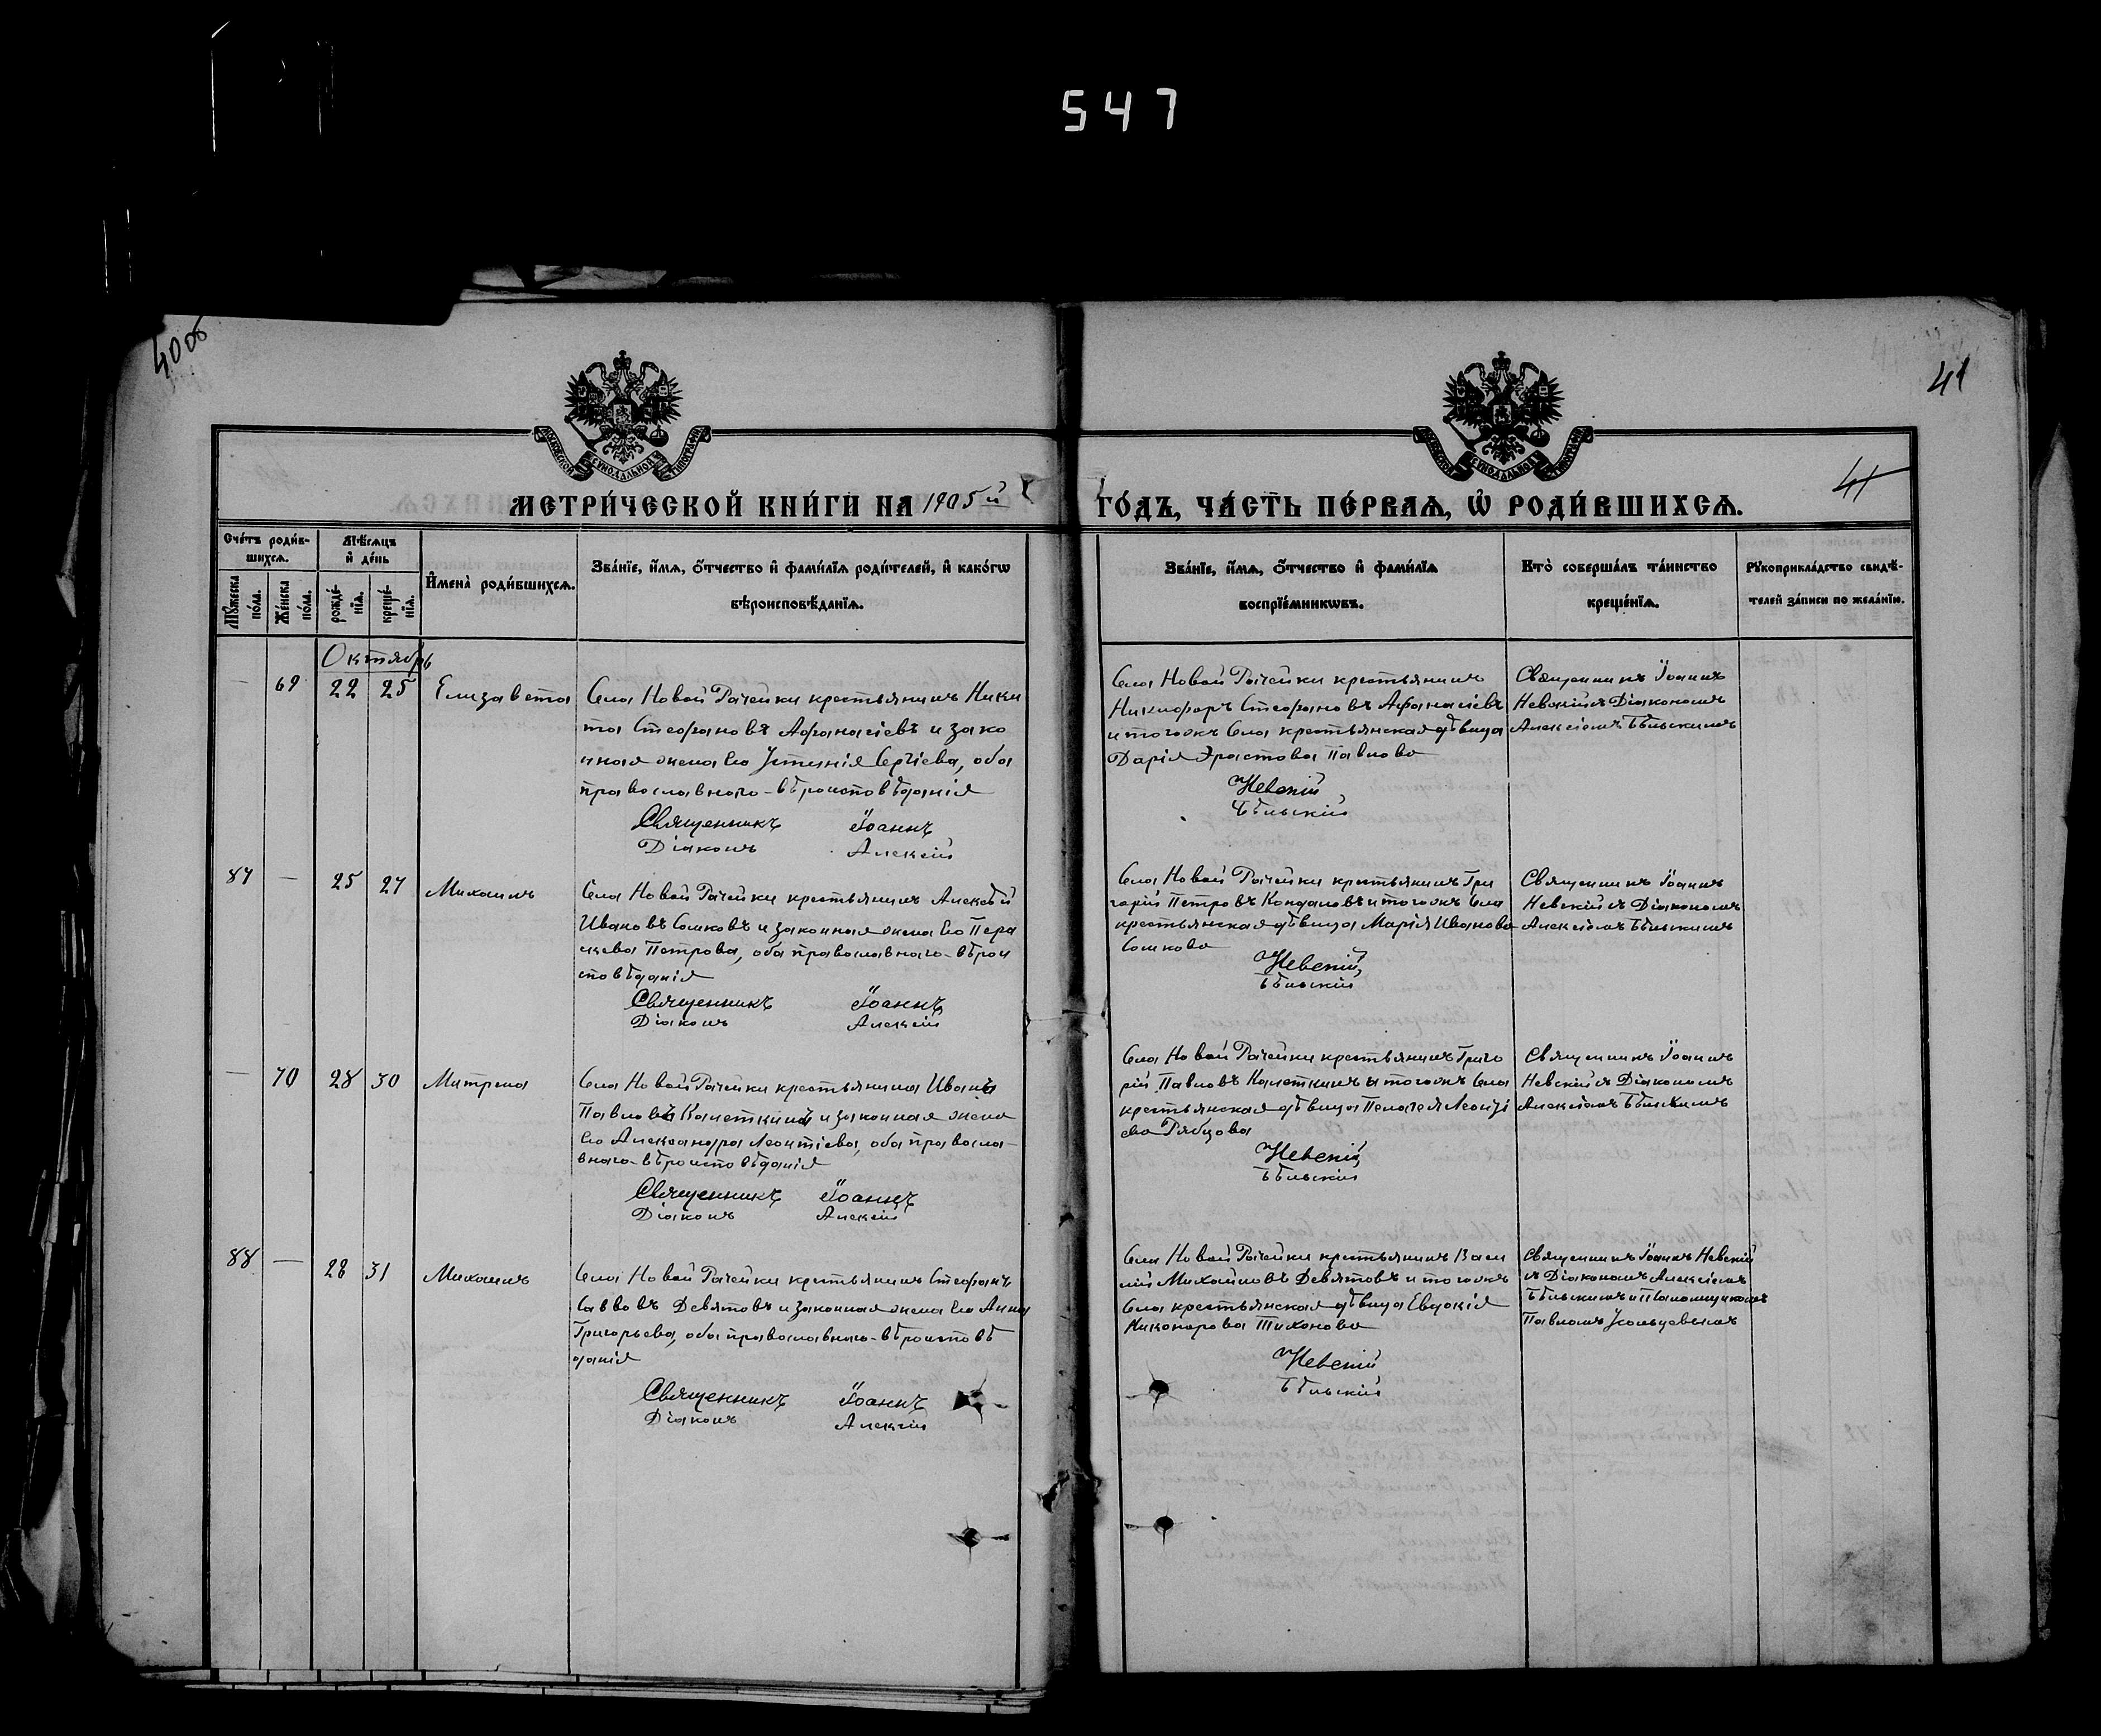 547
40об
41
МОСКОВСКОЙ СѴНОДАЛЬНОЙ ТИПОГРАФІИ
МОСКОВСКОЙ СѴНОДАЛЬНОЙ ТИПОГРАФІИ
41
МЕТРИ́ЧЕСКОЙ КНИ́ГИ НА 1905й
ГО́ДЪ, ЧА́СТЬ ПЕ́РВАѦ, Ѡ҆ РОДИ́ВШИХСѦ.
Сче́тъ роди́в-
шихсѧ.
Мꙋ́жеска
по́ла.
Же́нска
по́ла.
Мѣ́сѧцъ
и҆ де́нь
рожде́-
нїѧ.
креще́-
нїѧ.
И҆мена̀ роди́вшихсѧ.
Зва́нїе, и҆́мѧ, ѻ҆́тчество и҆ фами́лїѧ роди́телей, и҆ како́гѡ
вѣроисповѣ́данїѧ.
Зва́нїе, и҆́мѧ, ѻ҆́тчество и҆ фами́лїѧ
воспрїе́мникѡвъ.
Кто̀ соверша́лъ та́инство
креще́нїѧ.
Рꙋкоприкла́дство свидѣ́-
телей за́писи по жела́нїю.
Октябрь
— 69 22 25 Елизавета
Села Новой Рачейки крестьянинъ Ники
та Стефановъ Афанасіевъ и зако
нная жена его Устинія Сергіева, оба
православнаго-вѣроисповѣданія
Священникъ Іоаннъ
Діаконъ Алексій
Села Новой Рачейки крестьянинъ
Никифоръ Стефановъ Афанасіевъ
и тогожъ села крестьянская дѣвица
Дарія Эрастова Павлова
Невскій
Бѣльскій
Священникъ Іоаннъ
Невскій съ Діакономъ
Алексіемъ Бѣльскимъ
87 — 25 27 Михаилъ
Села Новой Рачейки крестьянинъ Алексѣй
Ивановъ Сомковъ и законная жена его Пара
скева Петрова, оба православнаго-вѣрои
сповѣданія
Священникъ Іоаннъ
Діаконъ Алексій
Села Новой Рачейки крестьянинъ Гри
горій Петровъ Кондаловъ и тогожъ села
крестьянская дѣвица Марія Иванова
Сомкова
Невскій
Бѣльскій
Священникъ Іоаннъ
Невскій съ Діакономъ
Алексіемъ Бѣльскимъ
— 70 28 30 Митрена
Села Новой Рачейки крестьянина Ивана
Павлова Калеткина и законная жена
его Александра Леонтіева, оба правосла-
внаго-вѣроисповѣданія
Священникъ Іоаннъ
Діаконъ Алексій
Села Новой Рачейки крестьянинъ Григо
рій Павловъ Калеткинъ и тогожъ села
крестьянская дѣвица Пелагея Леонті
ева Рябцова
Невскій
Бѣльскій
Священникъ Іоаннъ
Невскій съ Діакономъ
Алексіемъ Бѣльскимъ
88 — 28 31 Михаилъ
Села Новой Рачейки крестьянинъ Стефанъ
Саввовъ Девятовъ и законная жена его Анна
Григорьева, оба православнаго-вѣроисповѣ
данія
Священникъ Іоаннъ
Діаконъ Алексій
Села Новой Рачейки крестьянинъ Васи
лій Михайловъ Девятовъ и тогожъ
села крестьянская дѣвица Евдокія
Никонорова Тихонова
Невскій
Бѣльскій
Священникъ Іоаннъ Невскій
съ Діакономъ Алексіемъ
Бѣльскимъ и Псаломщикомъ
Павломъ Усольцевымъ